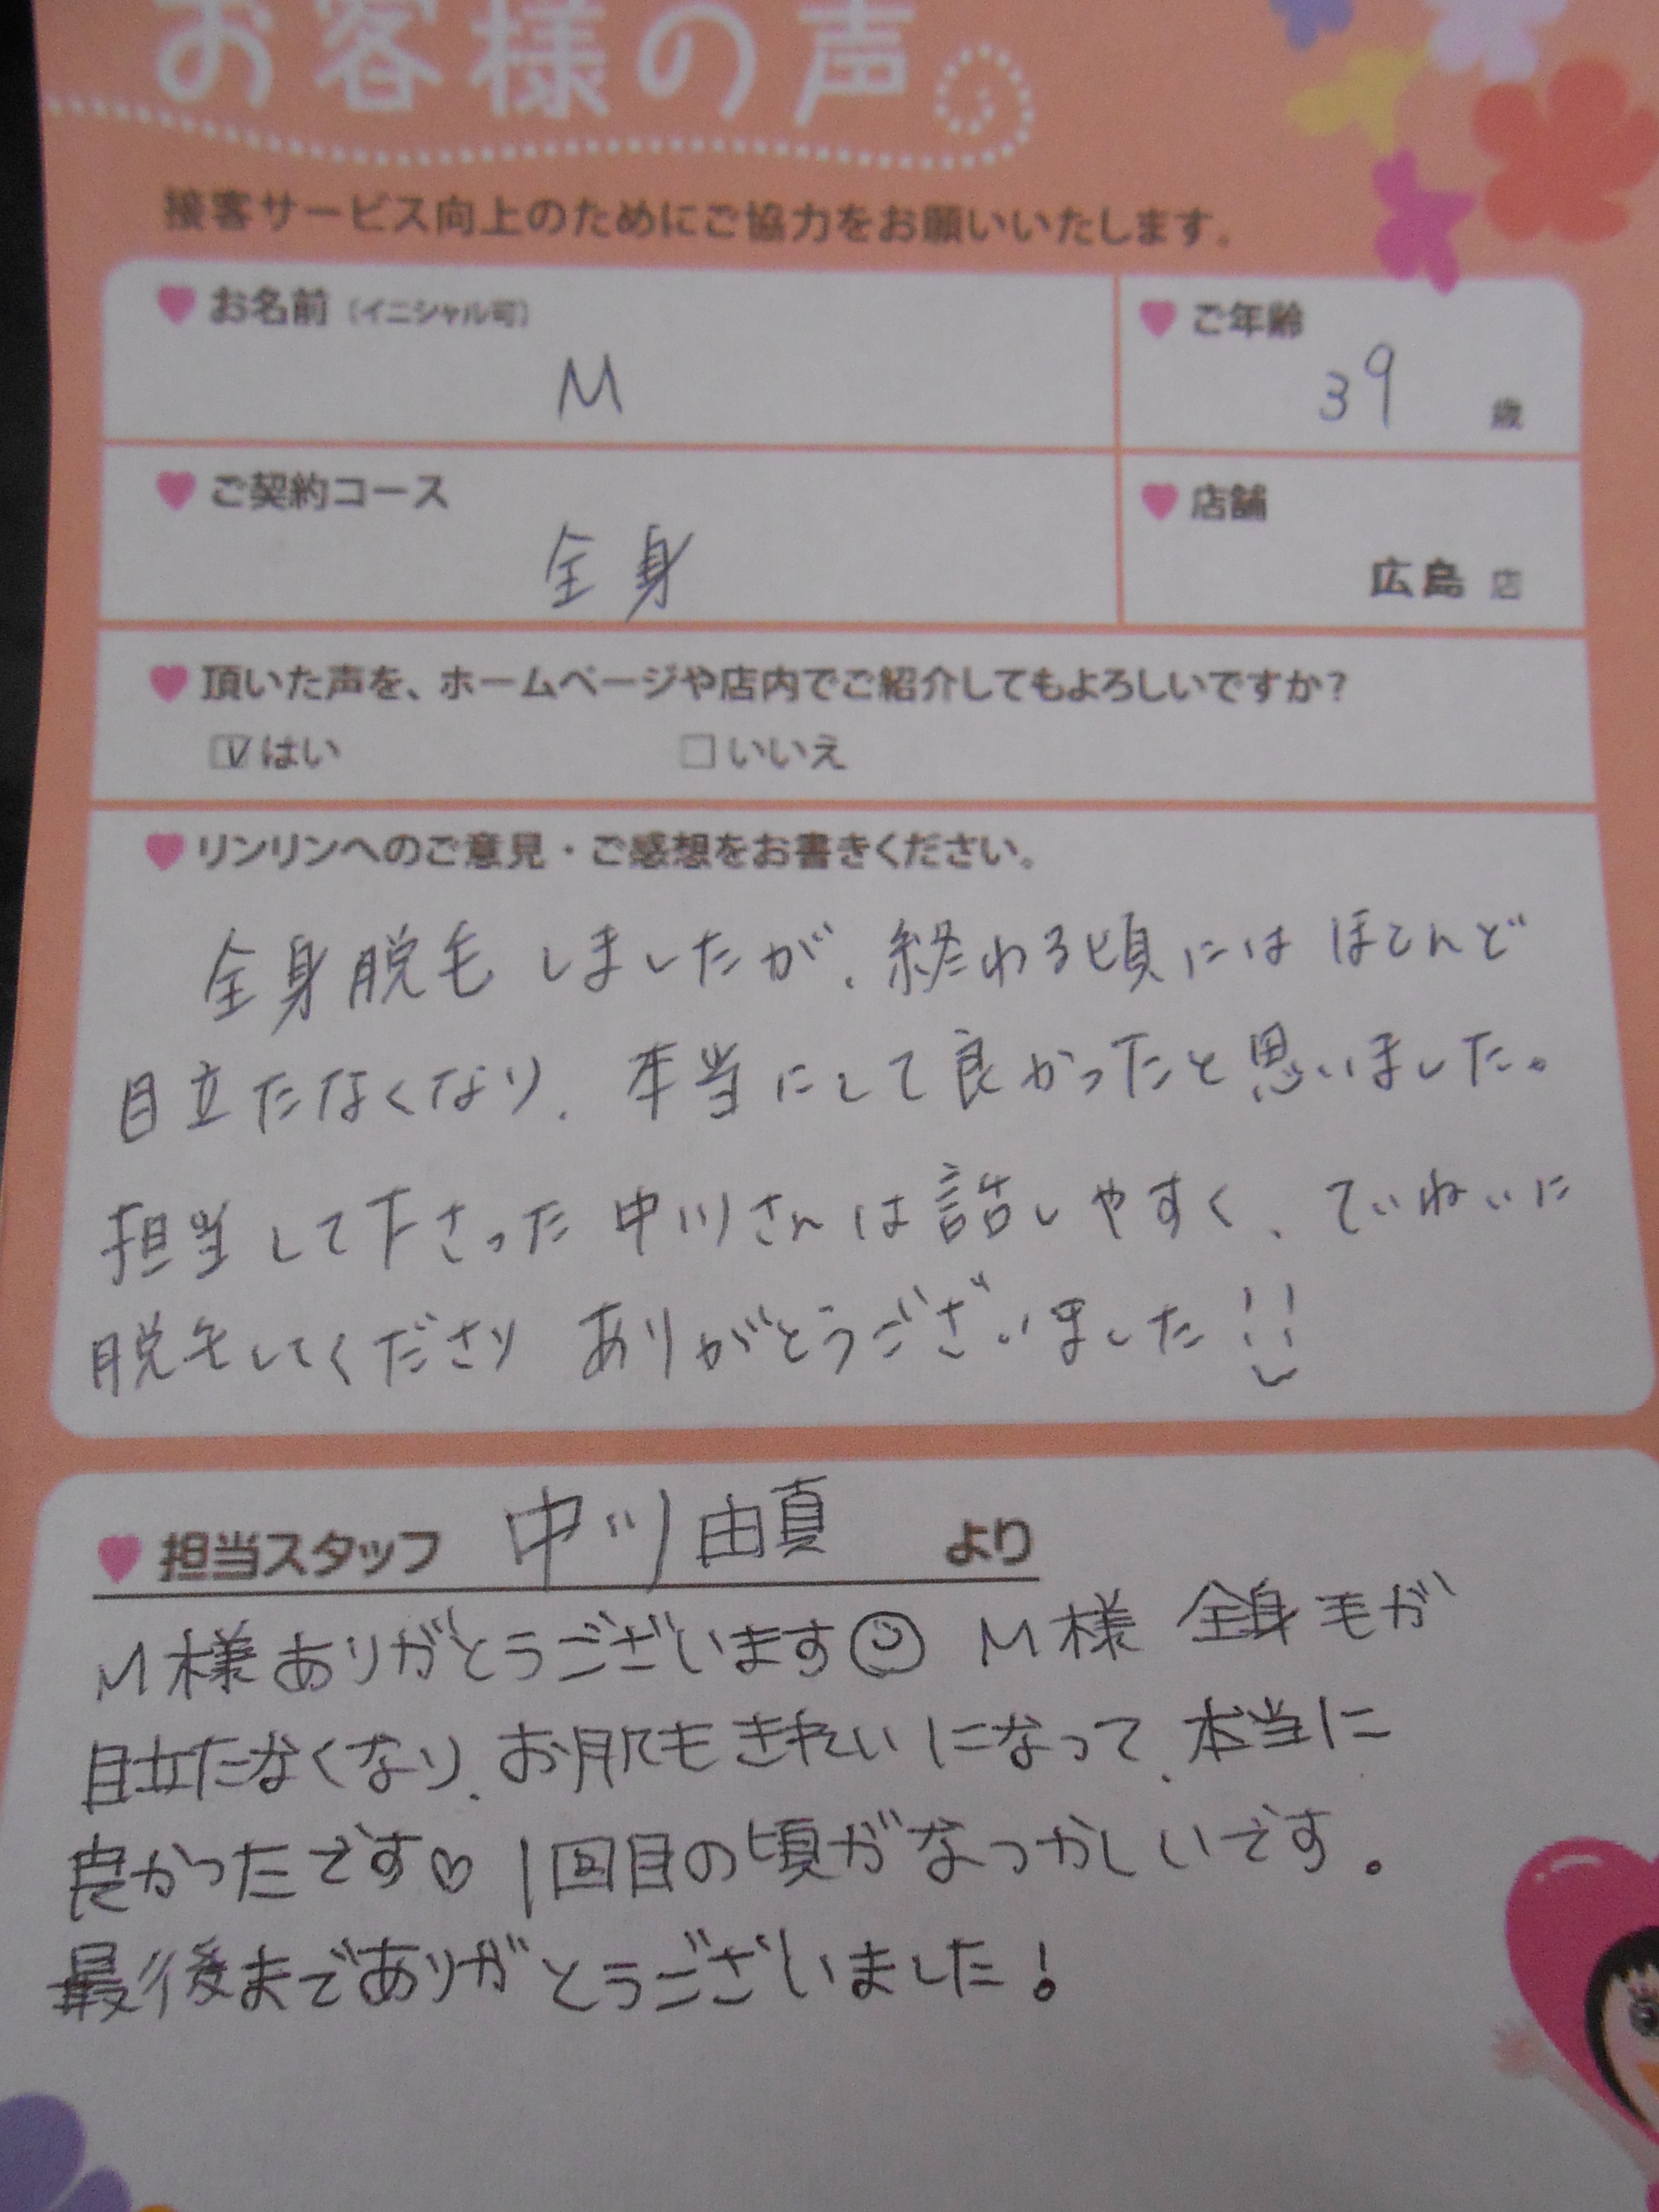 お客様の声
接客サービス向上のためにご協力をお願いいたします。
お名前（イニシャル可）
M
ご年齢
39 歳
ご契約コース
全身
店舗
広島 店
頂いた声を、ホームページや店内でご紹介してもよろしいですか？
はい いいえ
リンリンへのご意見・ご感想をお書きください。
全身脱毛しましたが、終わる頃にはほとんど
目立たなくなり、本当にして良かったと思いました。
担当して下さった中川さんは話しやすく、ていねいに
脱毛してくださりありがとうございました!!
担当スタッフ 中川由真 より
M様ありがとうございます M様 全身毛が
目立たなくなり、お肌もきれいになって、本当に
良かったです♡ 1回目の頃がなつかしいです。
最後までありがとうございました！